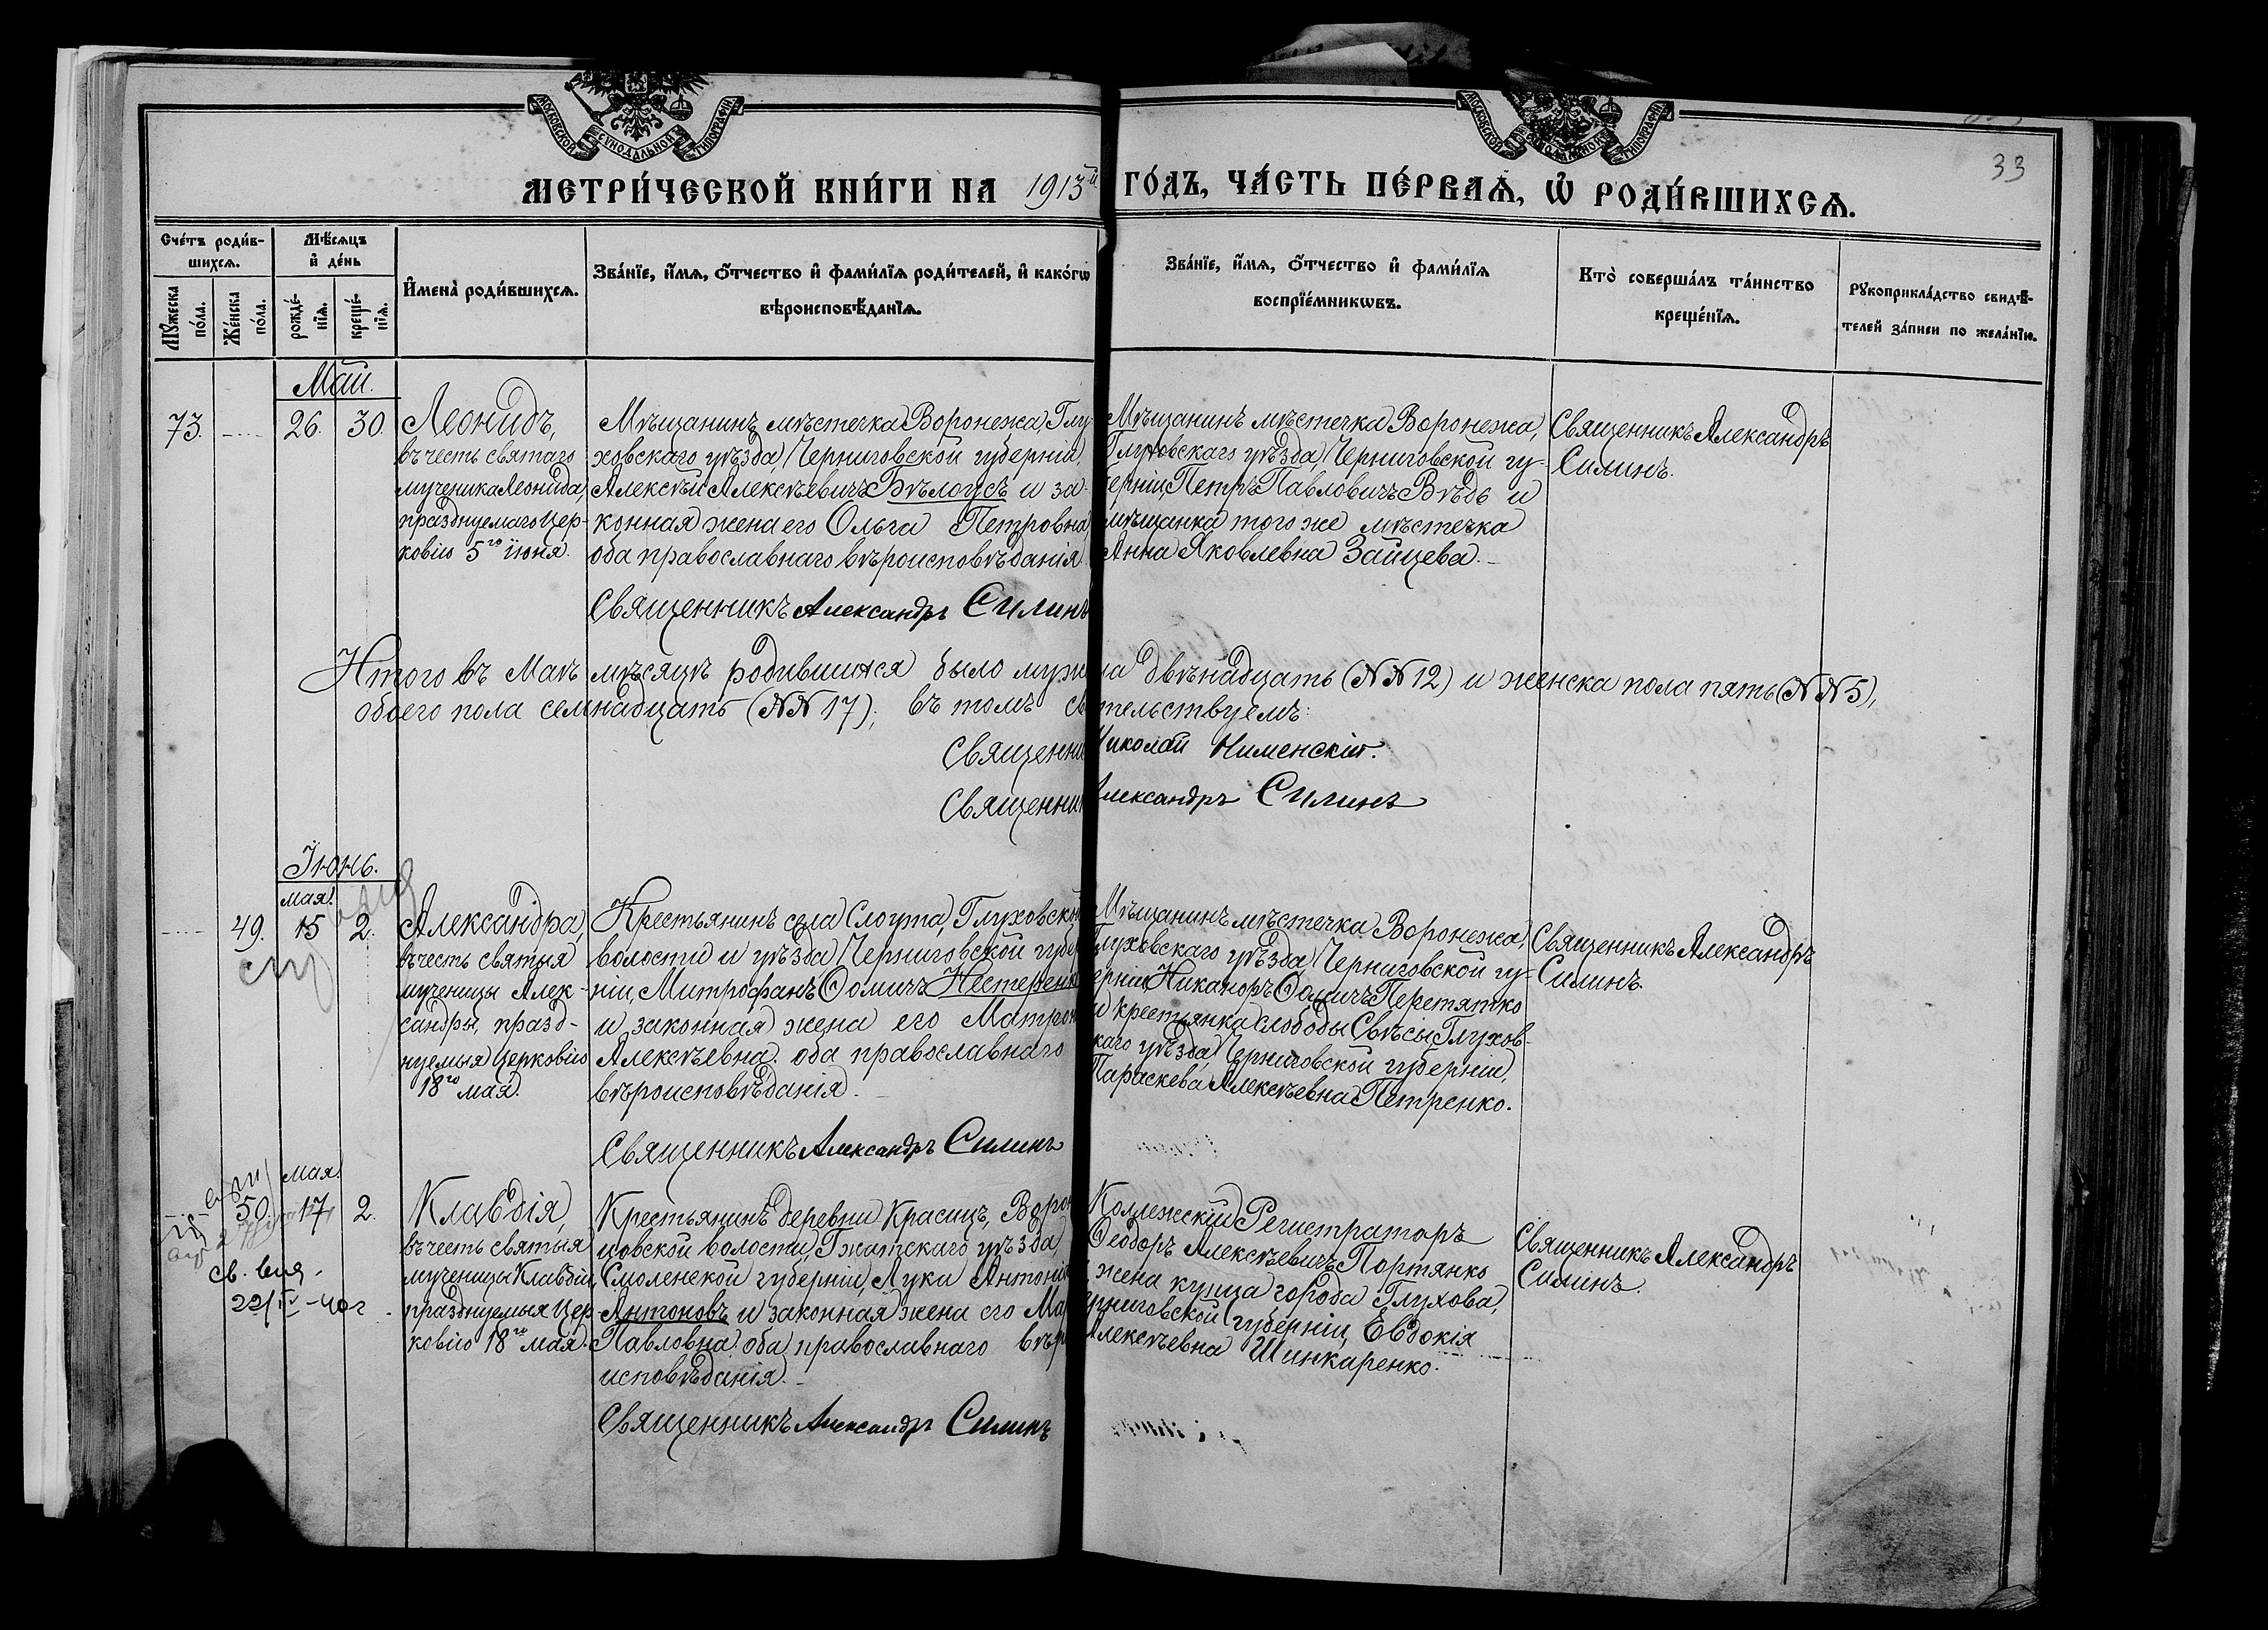 МОСКОВСКОЙ СѴНОДАЛЬНОЙ ТИПОГРАФІИ
МОСКОВСКОЙ СѴНОДАЛЬНОЙ ТИПОГРАФІИ
33
МЕТРИ́ЧЕСКОЙ КНИ́ГИ НА 1913й ГО́ДЪ, ЧА́СТЬ ПЕ́РВАѦ, Ѡ҆ РОДИ́ВШИХСѦ.
Сче́тъ роди́в-
шихсѧ.
Мꙋ́жеска
по́ла.
Же́нска
по́ла.
Мѣ́сѧцъ
и҆ де́нь
рожде́-
нїѧ.
креще́-
нїѧ.
И҆мена̀ роди́вшихсѧ.
Зва́нїе, и҆́мѧ, ѻ҆́тчество и҆ фами́лїѧ роди́телей, и҆ како́гѡ
вѣроисповѣ́данїѧ.
Зва́нїе, и҆́мѧ, ѻ҆́тчество и҆ фами́лїѧ
воспрїе́мникѡвъ.
Кто̀ соверша́лъ та́инство
креще́нїѧ.
Рꙋкоприкла́дство свидѣ́-
телей за́писи по жела́нїю.
Май.
73. 26. 30.
Леонидъ,
въ честь святаго
мученика Леонида,
празднуемаго Цер-
ковію 5го іюня.
Мѣщанинъ мѣстечка Воронежа, Глу-
ховскаго уѣзда, Черниговской губерніи,
Алексѣй Алексѣевичъ Бѣлоусъ и за-
конная жена его Ольга Петровна
оба православнаго вѣроисповѣданія.
Священникъ Александръ Силинъ
Мѣщанинъ мѣстечка Воронежа,
Глуховскаго уѣзда, Черниговской гу-
берніи, Петръ Павловичъ Вѣдь и
мѣщанка того же мѣстечка
Анна Яковлевна Зайцева.
Священникъ Александръ
Силинъ.
Итого въ Маѣ мѣсяцѣ родившихся было муж ла двѣнадцать (№№ 12) и женска пола пять (№№ 5),
обоего пола семнадцать (№№ 17); въ томъ св тельствуемъ:
Священни Николай
Священни Александръ Силинъ
Іюнь.
мая.
49. 15 2.
Александра,
въ честь святыя
мученицы Алек-
сандры, празд-
нуемыя Церковію
18го мая.
Крестьянинъ села Слоута, Глуховской
волости и уѣзда, Черниговской губер
ніи, Митрофанъ Ѳомичъ Нестеренк
и законная жена его Матрон
Алексѣевна. оба православнаго
вѣроисповѣданія.
Священникъ Александръ Силинъ
Мѣщанинъ мѣстечка Воронежа,
Глуховскаго уѣзда, Черниговской гу-
берніи, Никаноръ Ѳомичъ Перетятко
и крестьянка слободы Свѣсы Глухов-
скаго уѣзда, Черниговской губерніи,
Параскева Алексѣевна Петренко.
Священникъ Александръ
Силинъ.
мая.
50. 17 2.
св. выд.
22/IV – 40 г.
Клавдія,
въ честь святыя
мученицы Клавдіи,
празднуемыя Цер-
ковію 18го мая.
Крестьянинъ деревни Красицъ, Ворон
цовской волости, Гжатскаго уѣзда,
Смоленской губерніи, Лука Антоніе
Антоновъ и законная жена его Ма
Павловна. оба православнаго вѣро
исповѣданія.
Священникъ Александръ Силинъ
Коллежскій Регистраторъ
Ѳеодоръ Алексѣевичъ Портянко
и жена купца города Глухова,
Черниговской губерніи, Евдокія
Алексѣевна Шинкаренко.
Священникъ Александръ
Силинъ.